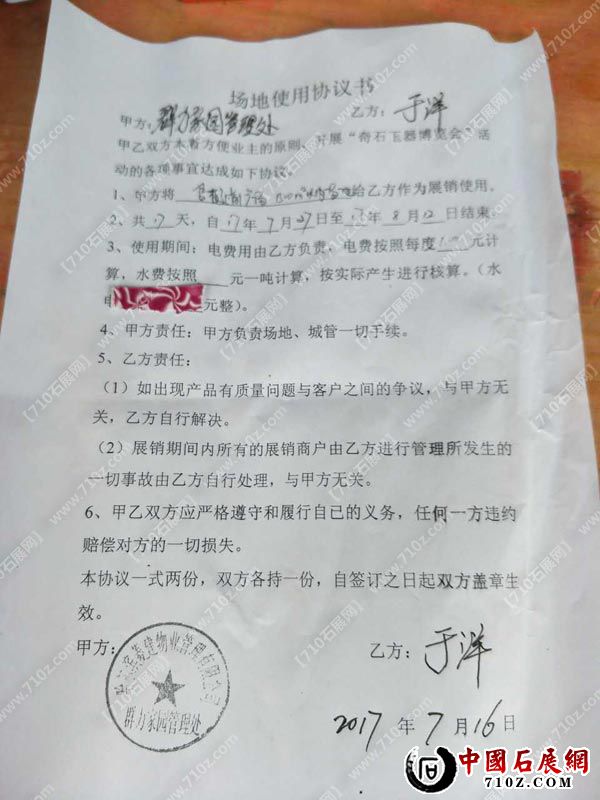 场地使用协议书
甲方：群力家园管理处 乙方：于洋
甲乙双方本着方便业主的原则、开展“奇石玉器博览会”活
动的各项事宜达成如下协议。
1、甲方将 给乙方作为展销使用。
2、共17天，自17年7月27日至17年8月12日结束。
3、使用期间：电费用由乙方负责，电费按照每度 元计
算，水费按照 元一吨计算，按实际产生进行核算。（水
元整）。
4、甲方责任：甲方负责场地、城管一切手续。
5、乙方责任：
（1）如出现产品有质量问题与客户之间的争议，与甲方无
关，乙方自行解决。
（2）展销期间内所有的展销商户由乙方进行管理所发生的
一切事故由乙方自行处理，与甲方无关。
6、甲乙双方应严格遵守和履行自已的义务，任何一方违约
赔偿对方的一切损失。
本协议一式两份，双方各持一份，自签订之日起双方盖章生
效。
甲方： 乙方：于洋
菱建物业管理有限公司
群力家园管理处
2017年7月16日
中國石展網
www.710z.com
【710石展网】